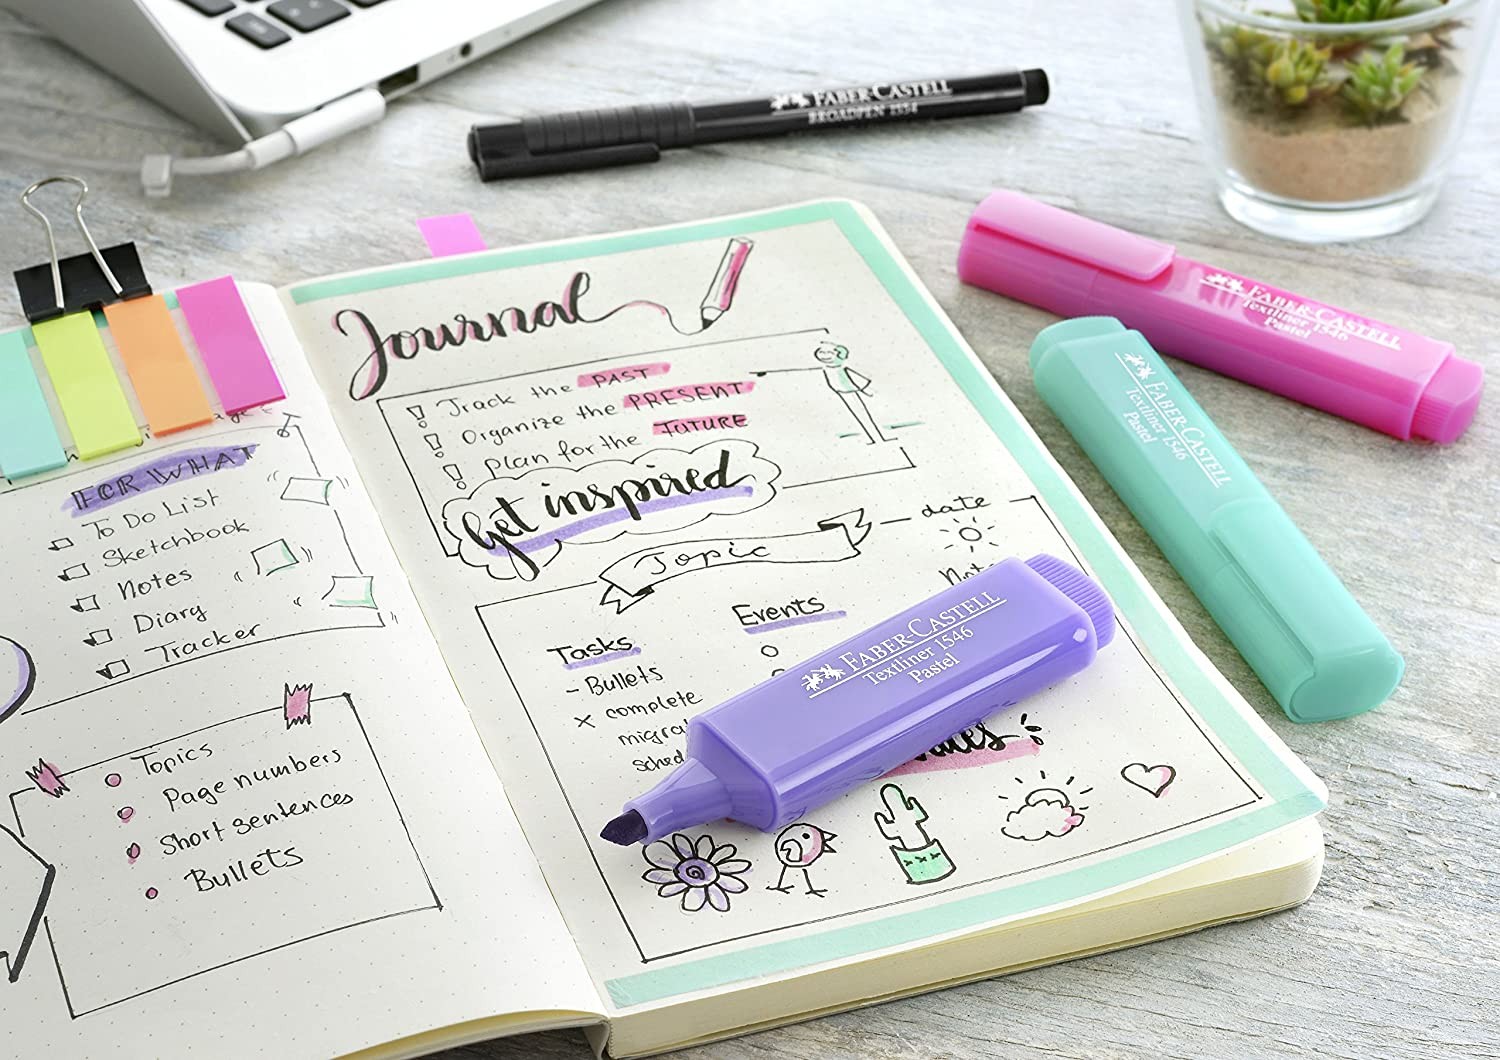 FABER-CASTELL
BROADPEN 1554
FABER-CASTELL
Textliner 1546
Pastel
FABER-CASTELL
Textliner 1546
Pastel
FABER-CASTELL
Textliner 1546
Pastel
FOR WHAT
To Do List
Sketchbook
Notes
Diary
Tracker
Topics
Page numbers
Short sentences
Bullets
Journal
! Track the PAST
! Organize the PRESENT
! plan for the FUTURE
Get inspired
Topic
date
Tasks
- Bullets
x complete
Events